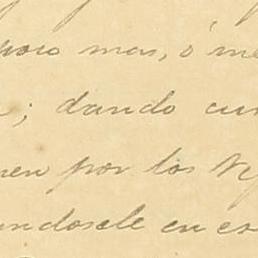 poco mas, ó me
; dando cu
en por los
ndosele en es